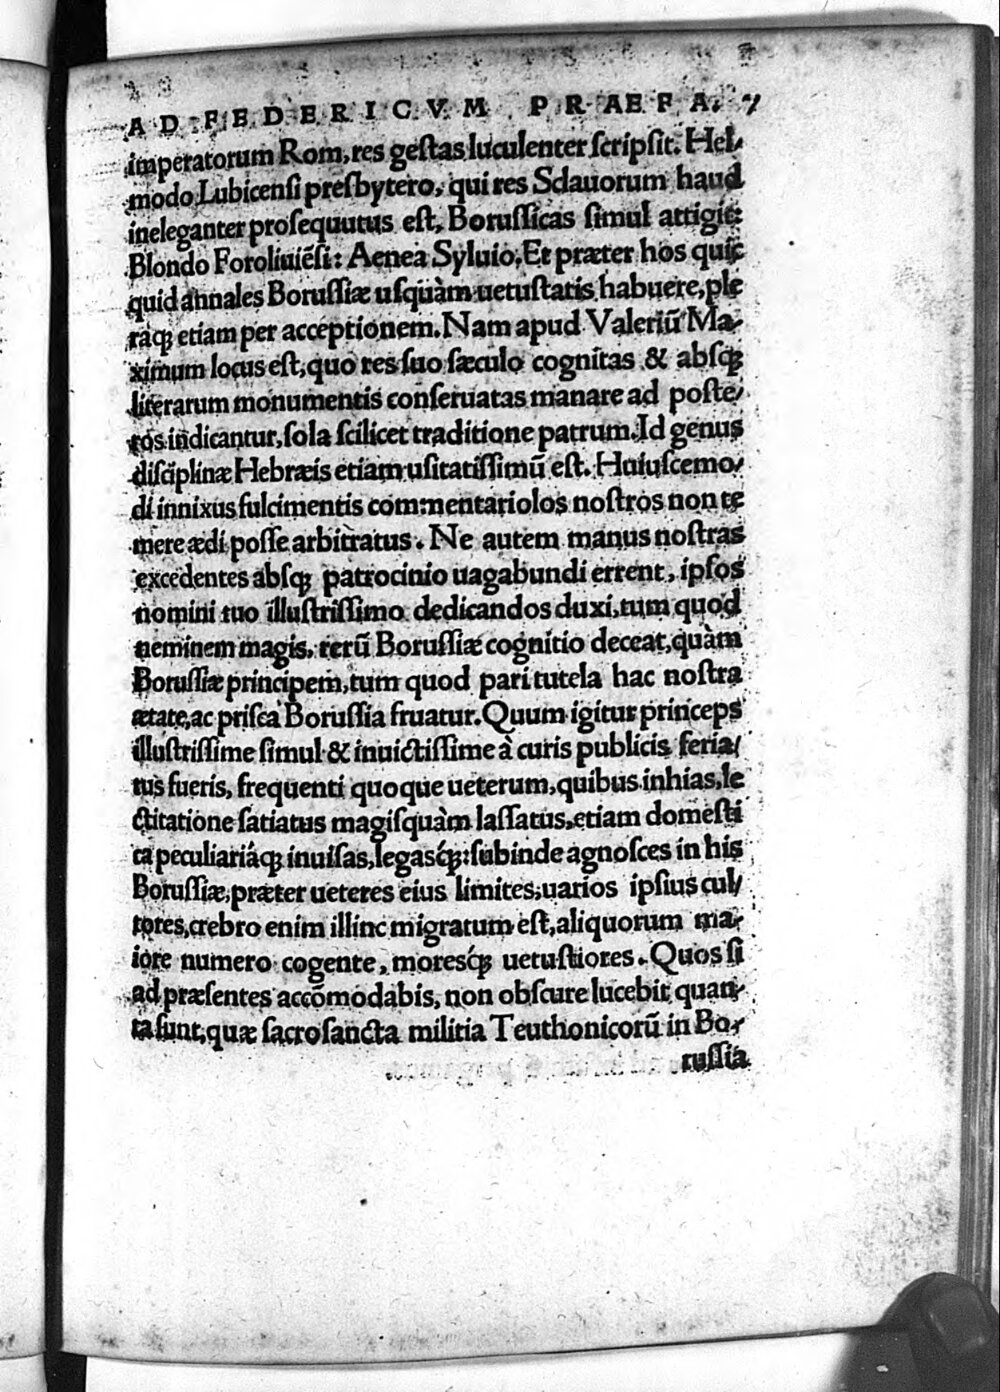 AD FEDERICVM PRAEFA. 7
imperatorum Rom, res geſtas luculenter ſcripſit. Hel⸗
modo Lubicenſi preſbytero, qui res Sclauorum haud
ineleganter proſequutus eſt, Boruſſicas ſimul attigit:
Blondo Foroliuiēſi: Aenea Syluio. Et præter hos quic
quid annales Boruſſiæ uſquàm uetuſtatis habuere, ple
raq; etiam per acceptionem. Nam apud Valeriū Ma⸗
ximum locus eſt, quo res ſuo ſæculo cognitas & abſq;
literarum monumentis conſeruatas manare ad poſte⸗
ros indicantur, ſola ſcilicet traditione patrum. Id genus
diſciplinæ Hebræis etiam uſitatiſſimū eſt. Huiuſcemo⸗
di innixus fulcimentis commentariolos noſtros non te
mere ædi poſſe arbitratus. Ne autem manus noſtras
excedentes abſq; patrocinio uagabundi errent, ipſos
nomini tuo illuſtriſſimo dedicandos duxi, tum quod
neminem magis, rerū Boruſſiæ cognitio deceat, quàm
Boruſſiæ principem, tum quod pari tutela hac noſtra
ætate, ac priſca Boruſſia fruatur. Quum igitur princeps
illuſtriſſime ſimul & inuictiſſime à curis publicis feria⸗
tus fueris, frequenti quoque ueterum, quibus inhias, le
ctitatione ſatiatus magiſquàm laſſatus, etiam domeſti
ca peculiariáq; inuiſas, legasq́;: ſubinde agnoſces in his
Boruſſiæ, præter ueteres eius limites, uarios ipſius cul⸗
tores, crebro enim illinc migratum eſt, aliquorum ma⸗
iore numero cogente, moresq́; uetuſtiores. Quos ſi
ad præſentes accōmodabis, non obſcure lucebit quan⸗
ta ſunt, quæ ſacroſancta militia Teuthonicorū in Bo⸗
ruſſia